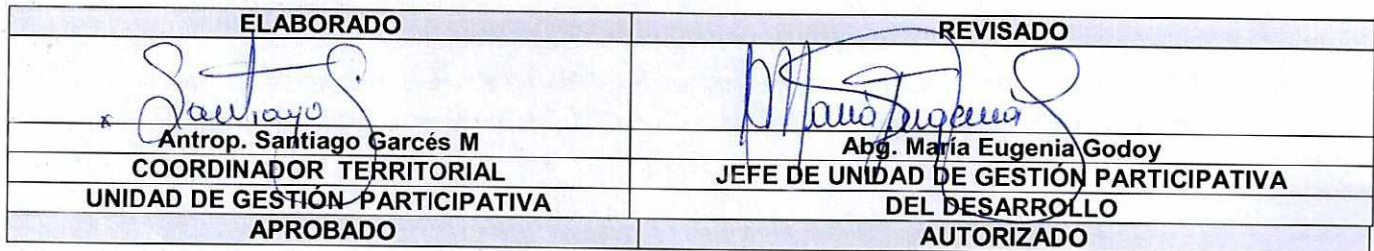 ELABORADO
REVISADO
x Santiago
María Eugenia
Antrop. Santiago Garcés M
Abg. María Eugenia Godoy
COORDINADOR TERRITORIAL
JEFE DE UNIDAD DE GESTIÓN PARTICIPATIVA
UNIDAD DE GESTIÓN PARTICIPATIVA
DEL DESARROLLO
APROBADO
AUTORIZADO